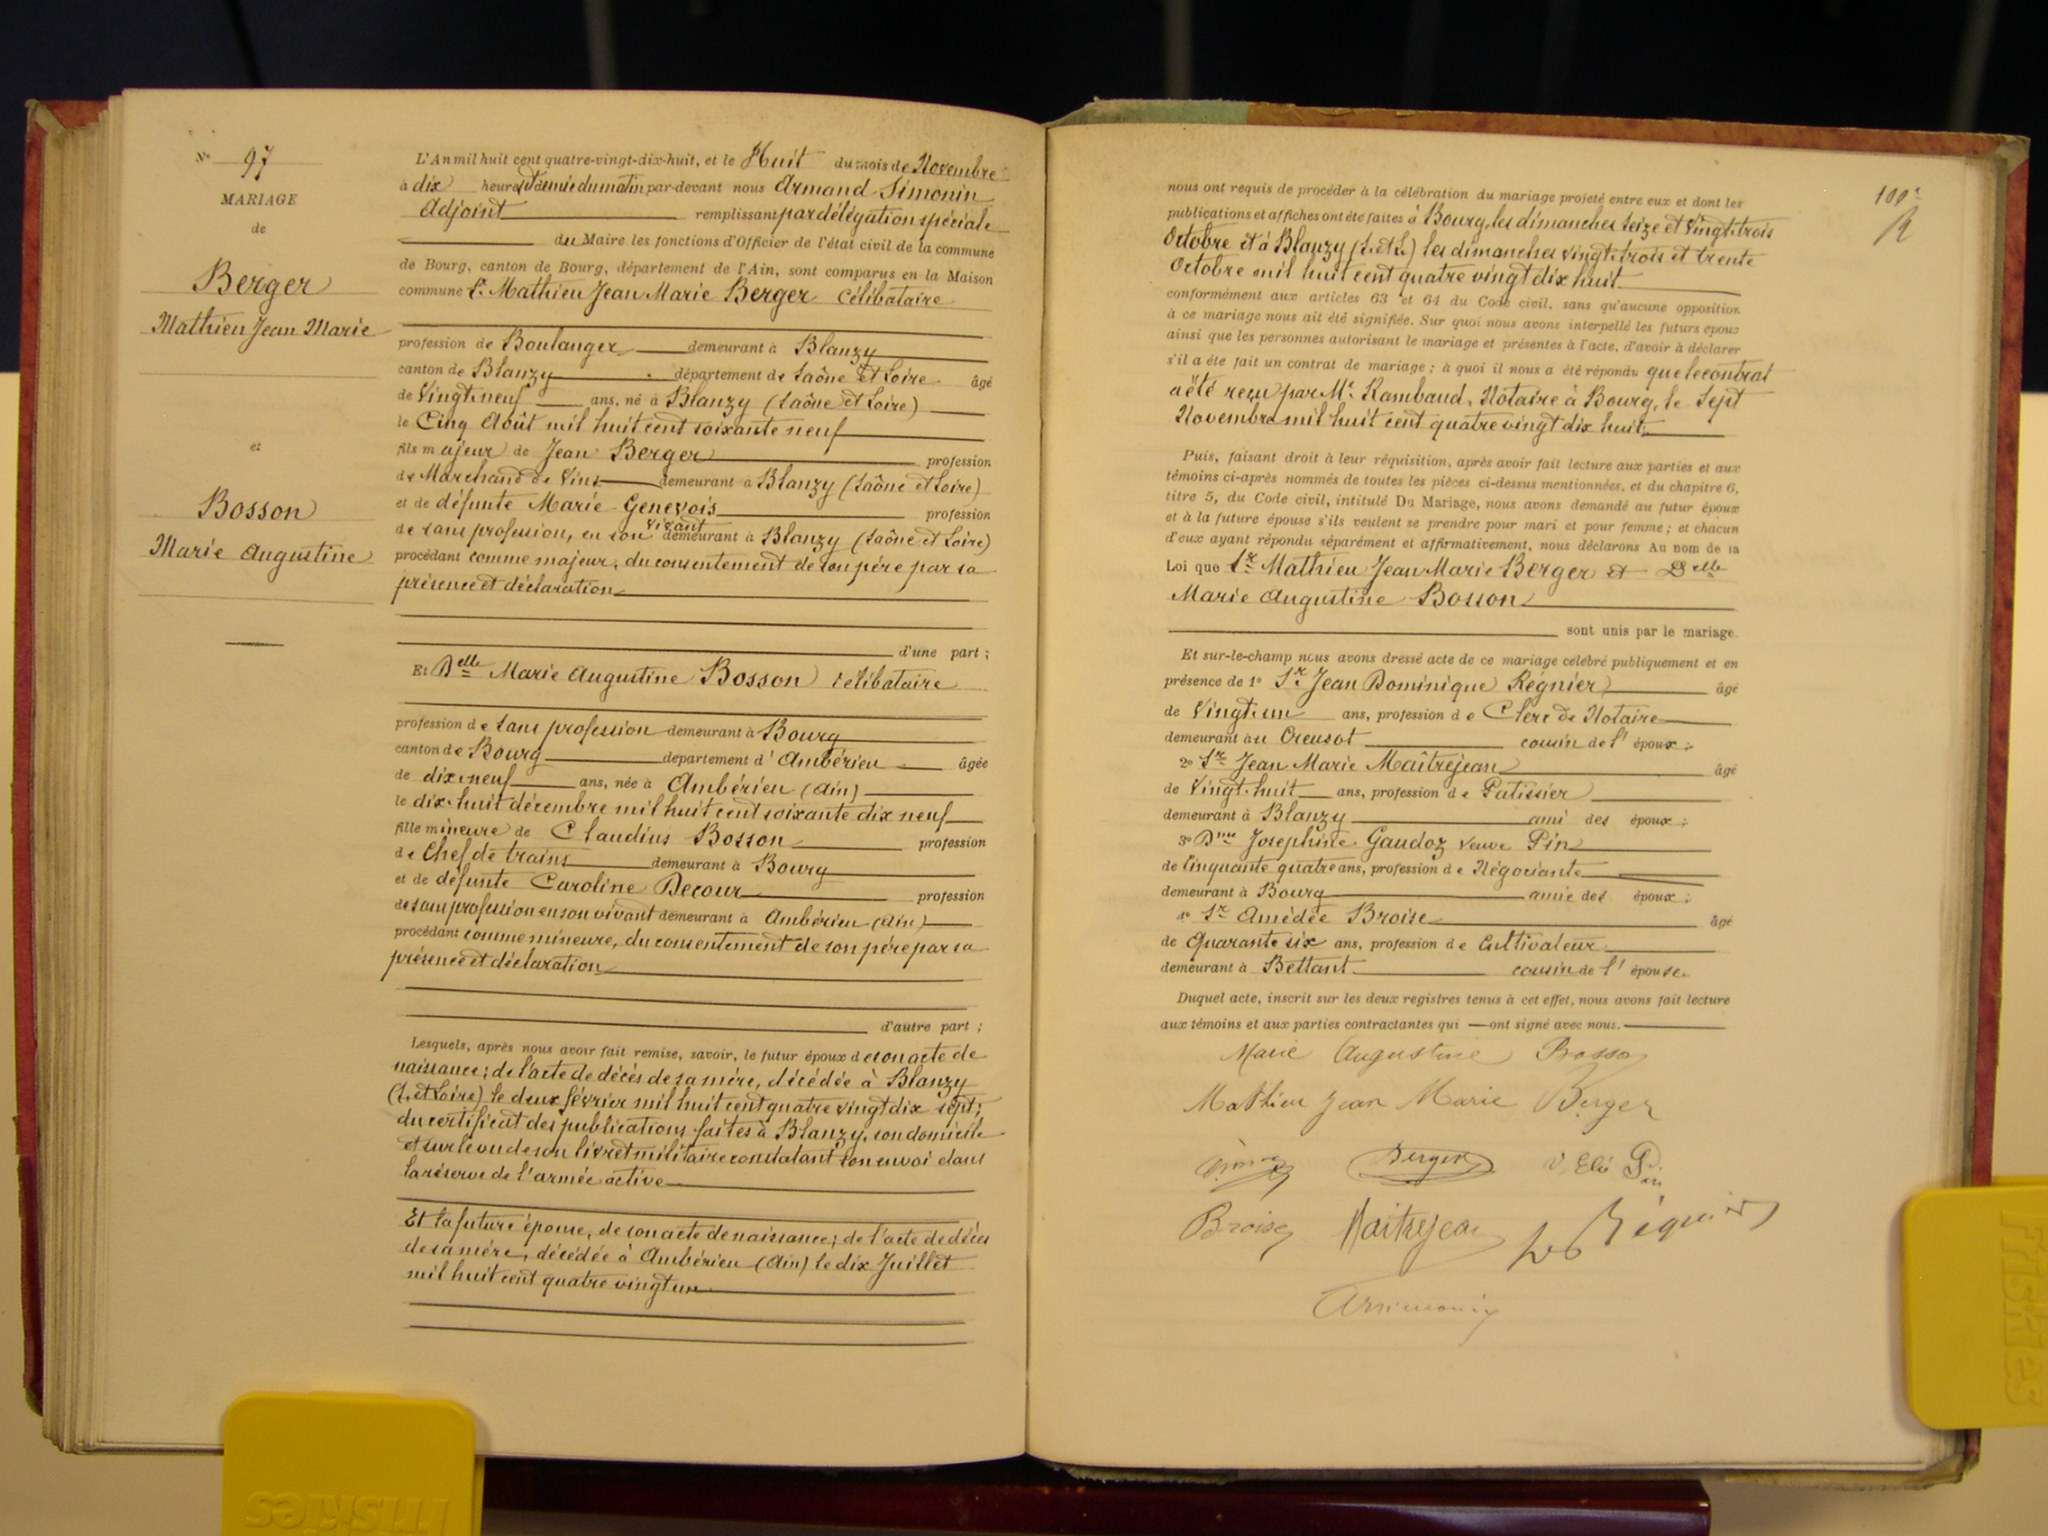 N° 97
MARIAGE
de
Berger
Mathieu Jean Marie
et
Bosson
Marie Augustine
L'An mil huit cent quatre-vingt-dix-huit, et le Huit du mois de Novembre
à dix heures et demie du matin par-devant nous Armand Simonin
Adjoint remplissant par délégation spéciale
du Maire les fonctions d'Officier de l'état civil de la commune
de Bourg, canton de Bourg, département de l'Ain, sont comparus en la Maison
commune Sr Mathieu Jean Marie Berger célibataire
profession de Boulanger demeurant à Blanzy
canton de Blanzy département de Saône et Loire âgé
de Vingt-neuf ans, né à Blanzy (Saône et Loire)
le Cinq Août mil huit cent soixante neuf
fils majeur de Jean Berger profession
de Marchand de Vins demeurant à Blanzy (Saône et Loire)
et de défunte Marie Genevois profession
de sans profession, en son vivant demeurant à Blanzy (Saône et Loire)
procédant comme majeur, du consentement de son père par sa
présence et déclaration
d'une part ;
Et Delle Marie Augustine Bosson célibataire
profession de sans profession demeurant à Bourg
canton de Bourg département d'Ambérieu âgée
de dix-neuf ans, née à Ambérieu (Ain)
le dix-huit décembre mil huit cent soixante dix neuf
fille mineure de Claudius Bosson profession
de Chef de trains demeurant à Bourg
et de défunte Caroline Decour profession
de sans profession en son vivant demeurant à Ambérieu (Ain)
procédant comme mineure, du consentement de son père par sa
présence et déclaration
d'autre part ;
Lesquels, après nous avoir fait remise, savoir, le futur époux de son acte de
naissance ; de l'acte de décès de sa mère, décédée à Blanzy
(S. et Loire) le deux février mil huit cent quatre vingt dix sept ;
du certificat des publications faites à Blanzy, son domicile
et sur le vu de son livret militaire constatant son envoi dans
la réserve de l'armée active
Et la future épouse, de son acte de naissance ; de l'acte de décès
de sa mère, décédée à Ambérieu (Ain) le dix Juillet
mil huit cent quatre vingt un
100e
nous ont requis de procéder à la célébration du mariage projeté entre eux et dont les
publications et affiches ont été faites à Bourg, les dimanches seize et Vingt-trois
Octobre et à Blanzy (S. et L.) les dimanches vingt-trois et trente
Octobre mil huit cent quatre vingt dix huit
conformément aux articles 63 et 64 du Code civil, sans qu'aucune opposition
à ce mariage nous ait été signifiée. Sur quoi nous avons interpellé les futurs époux
ainsi que les personnes autorisant le mariage et présentes à l'acte, d'avoir à déclarer
s'il a été fait un contrat de mariage ; à quoi il nous a été répondu que le contrat
a été reçu par Me Rambaud, Notaire à Bourg, le Sept
Novembre mil huit cent quatre vingt dix huit.
Puis, faisant droit à leur réquisition, après avoir fait lecture aux parties et aux
témoins ci-après nommés de toutes les pièces ci-dessus mentionnées, et du chapitre 6,
titre 5, du Code civil, intitulé Du Mariage, nous avons demandé au futur époux
et à la future épouse s'ils veulent se prendre pour mari et pour femme ; et chacun
d'eux ayant répondu séparément et affirmativement, nous déclarons Au nom de la
Loi que Sr Mathieu Jean Marie Berger et Delle
Marie Augustine Bosson
sont unis par le mariage.
Et sur-le-champ nous avons dressé acte de ce mariage célébré publiquement et en
présence de 1° Sr Jean Dominique Régnier âgé
de Vingt-un ans, profession de Clerc de Notaire
demeurant au Creusot cousin de l'époux ;
2° Sr Jean Marie Maîtrejean âgé
de Vingt-huit ans, profession de Patissier
demeurant à Blanzy ami des époux ;
3° Dme Josephine Gaudoz veuve Pin
de Cinquante quatre ans, profession de Négociante
demeurant à Bourg amie des époux ;
4° Sr Amédée Broise âgé
de Quarante six ans, profession de Cultivateur
demeurant à Bettant cousin de l'épouse.
Duquel acte, inscrit sur les deux registres tenus à cet effet, nous avons fait lecture
aux témoins et aux parties contractantes qui ont signé avec nous.
Marie Augustine Bosson
Mathieu Jean Marie Berger
Berger Pin
Broise Maitrejean Régnier
Friskies
Friskies